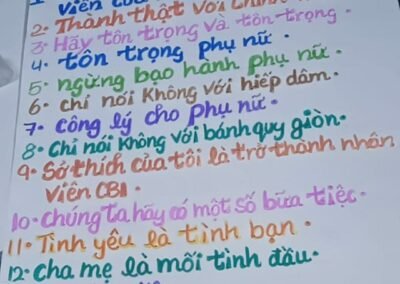 Viên
2. Thành thật với
3. Hãy tôn trọng và tôn trọng.
4. tôn trọng phụ nữ.
5. ngừng bạo hành phụ nữ.
6. chỉ nói không với hiếp dâm.
7. công lý cho phụ nữ.
8. Chỉ nói không với bánh quy giòn.
9. Sở thích của tôi là trở thành nhân
viên CBI.
10. chúng ta hãy có một số bữa tiệc.
11. Tình yêu là tình bạn.
12. cha mẹ là mối tình đầu.